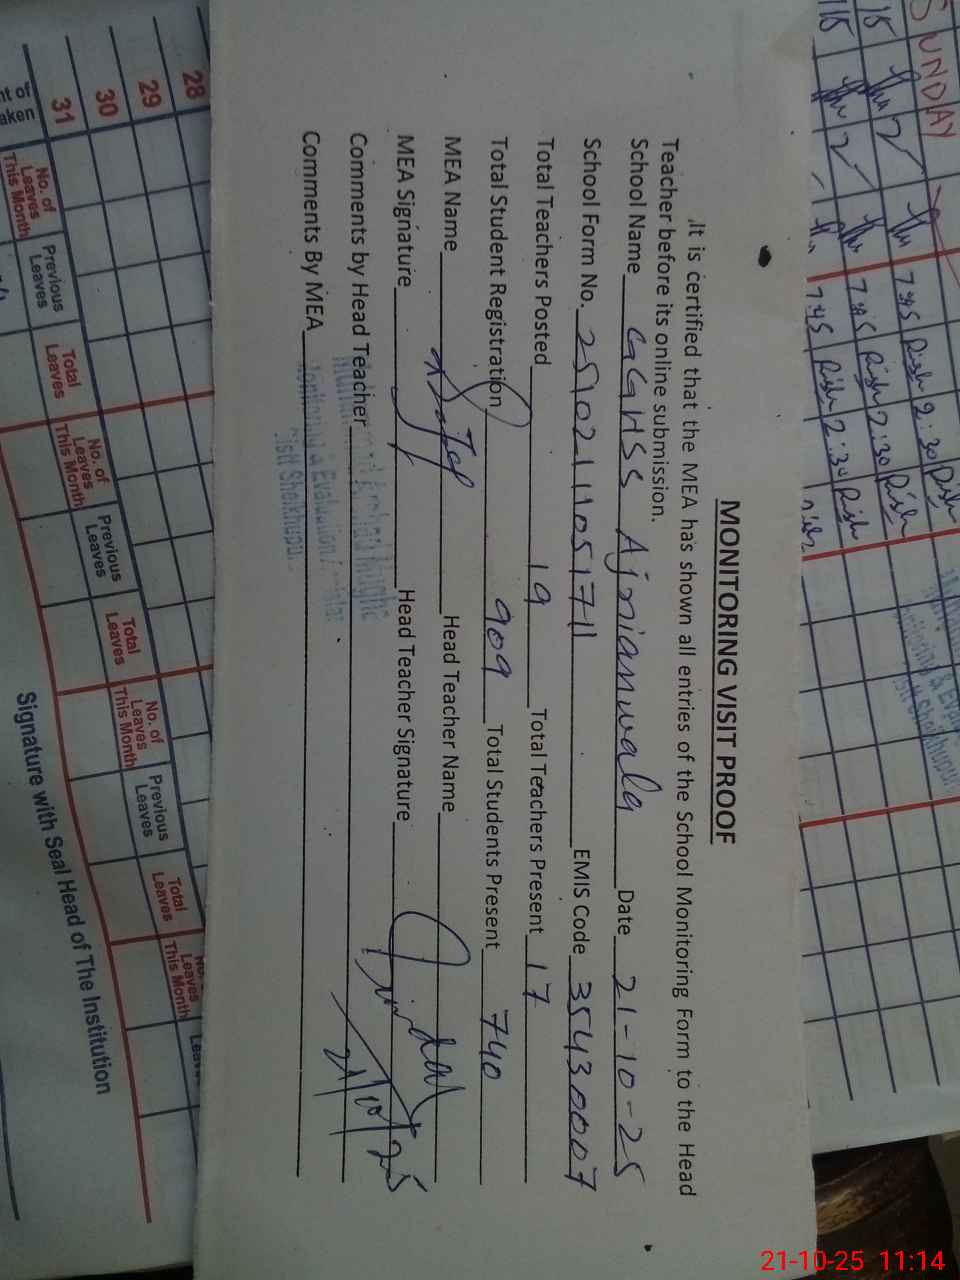 MONITORING VISIT PROOF
It is certified that the MEA has shown all entries of the School Monitoring Form to the Head
Teacher before its online submission.
School Name GGHSS Ajnianwala Date 21-10-25
School Form No. EMIS Code 35430007
Total Teachers Posted 19 Total Teachers Present 17
Total Student Registration 909 Total Students Present 740
MEA Name Head Teacher Name
MEA Signature Head Teacher Signature
Comments by Head Teacher 21/10/25
Comments By MEA
Monitoring & Evaluation
Distt Sheikhupura
SUNDAY
7:45 2:30
7:45 2:30
7:45 2:30
28
29
30
31
No. of Leaves This Month
Previous Leaves
Total Leaves
No. of Leaves This Month
Previous Leaves
Total Leaves
No. of Leaves This Month
Previous Leaves
Total Leaves
No. of Leaves This Month
Signature with Seal Head of The Institution
21-10-25 11:14